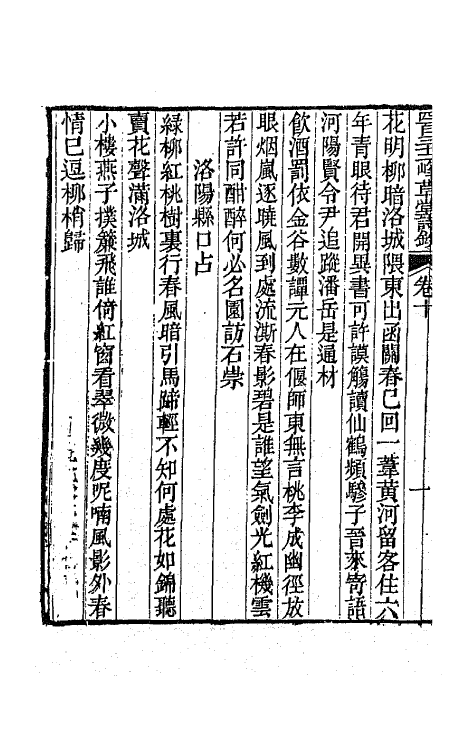 草堂詩錄 卷十
花明柳暗洛城隈東出函關春已回一葦黃河留客住六
年青眼待君開異書可許謨觴讀仙鶴頻驂子晉來寄語
河陽賢令尹追蹤潘岳是通材
飲酒罰依金谷數譚元人在偃師東無言桃李成幽徑放
眼烟嵐逐曉風到處流澌春影碧是誰望氣劍光紅機雲
若許同酣醉何必名園訪石崇
洛陽縣口占
綠柳紅桃樹裏行春風暗引馬蹄輕不知何處花如錦聽
賣花聲滿洛城
小樓燕子撲簾飛誰倚紅窗看翠微幾度呢喃風影外春
情已逗柳梢歸